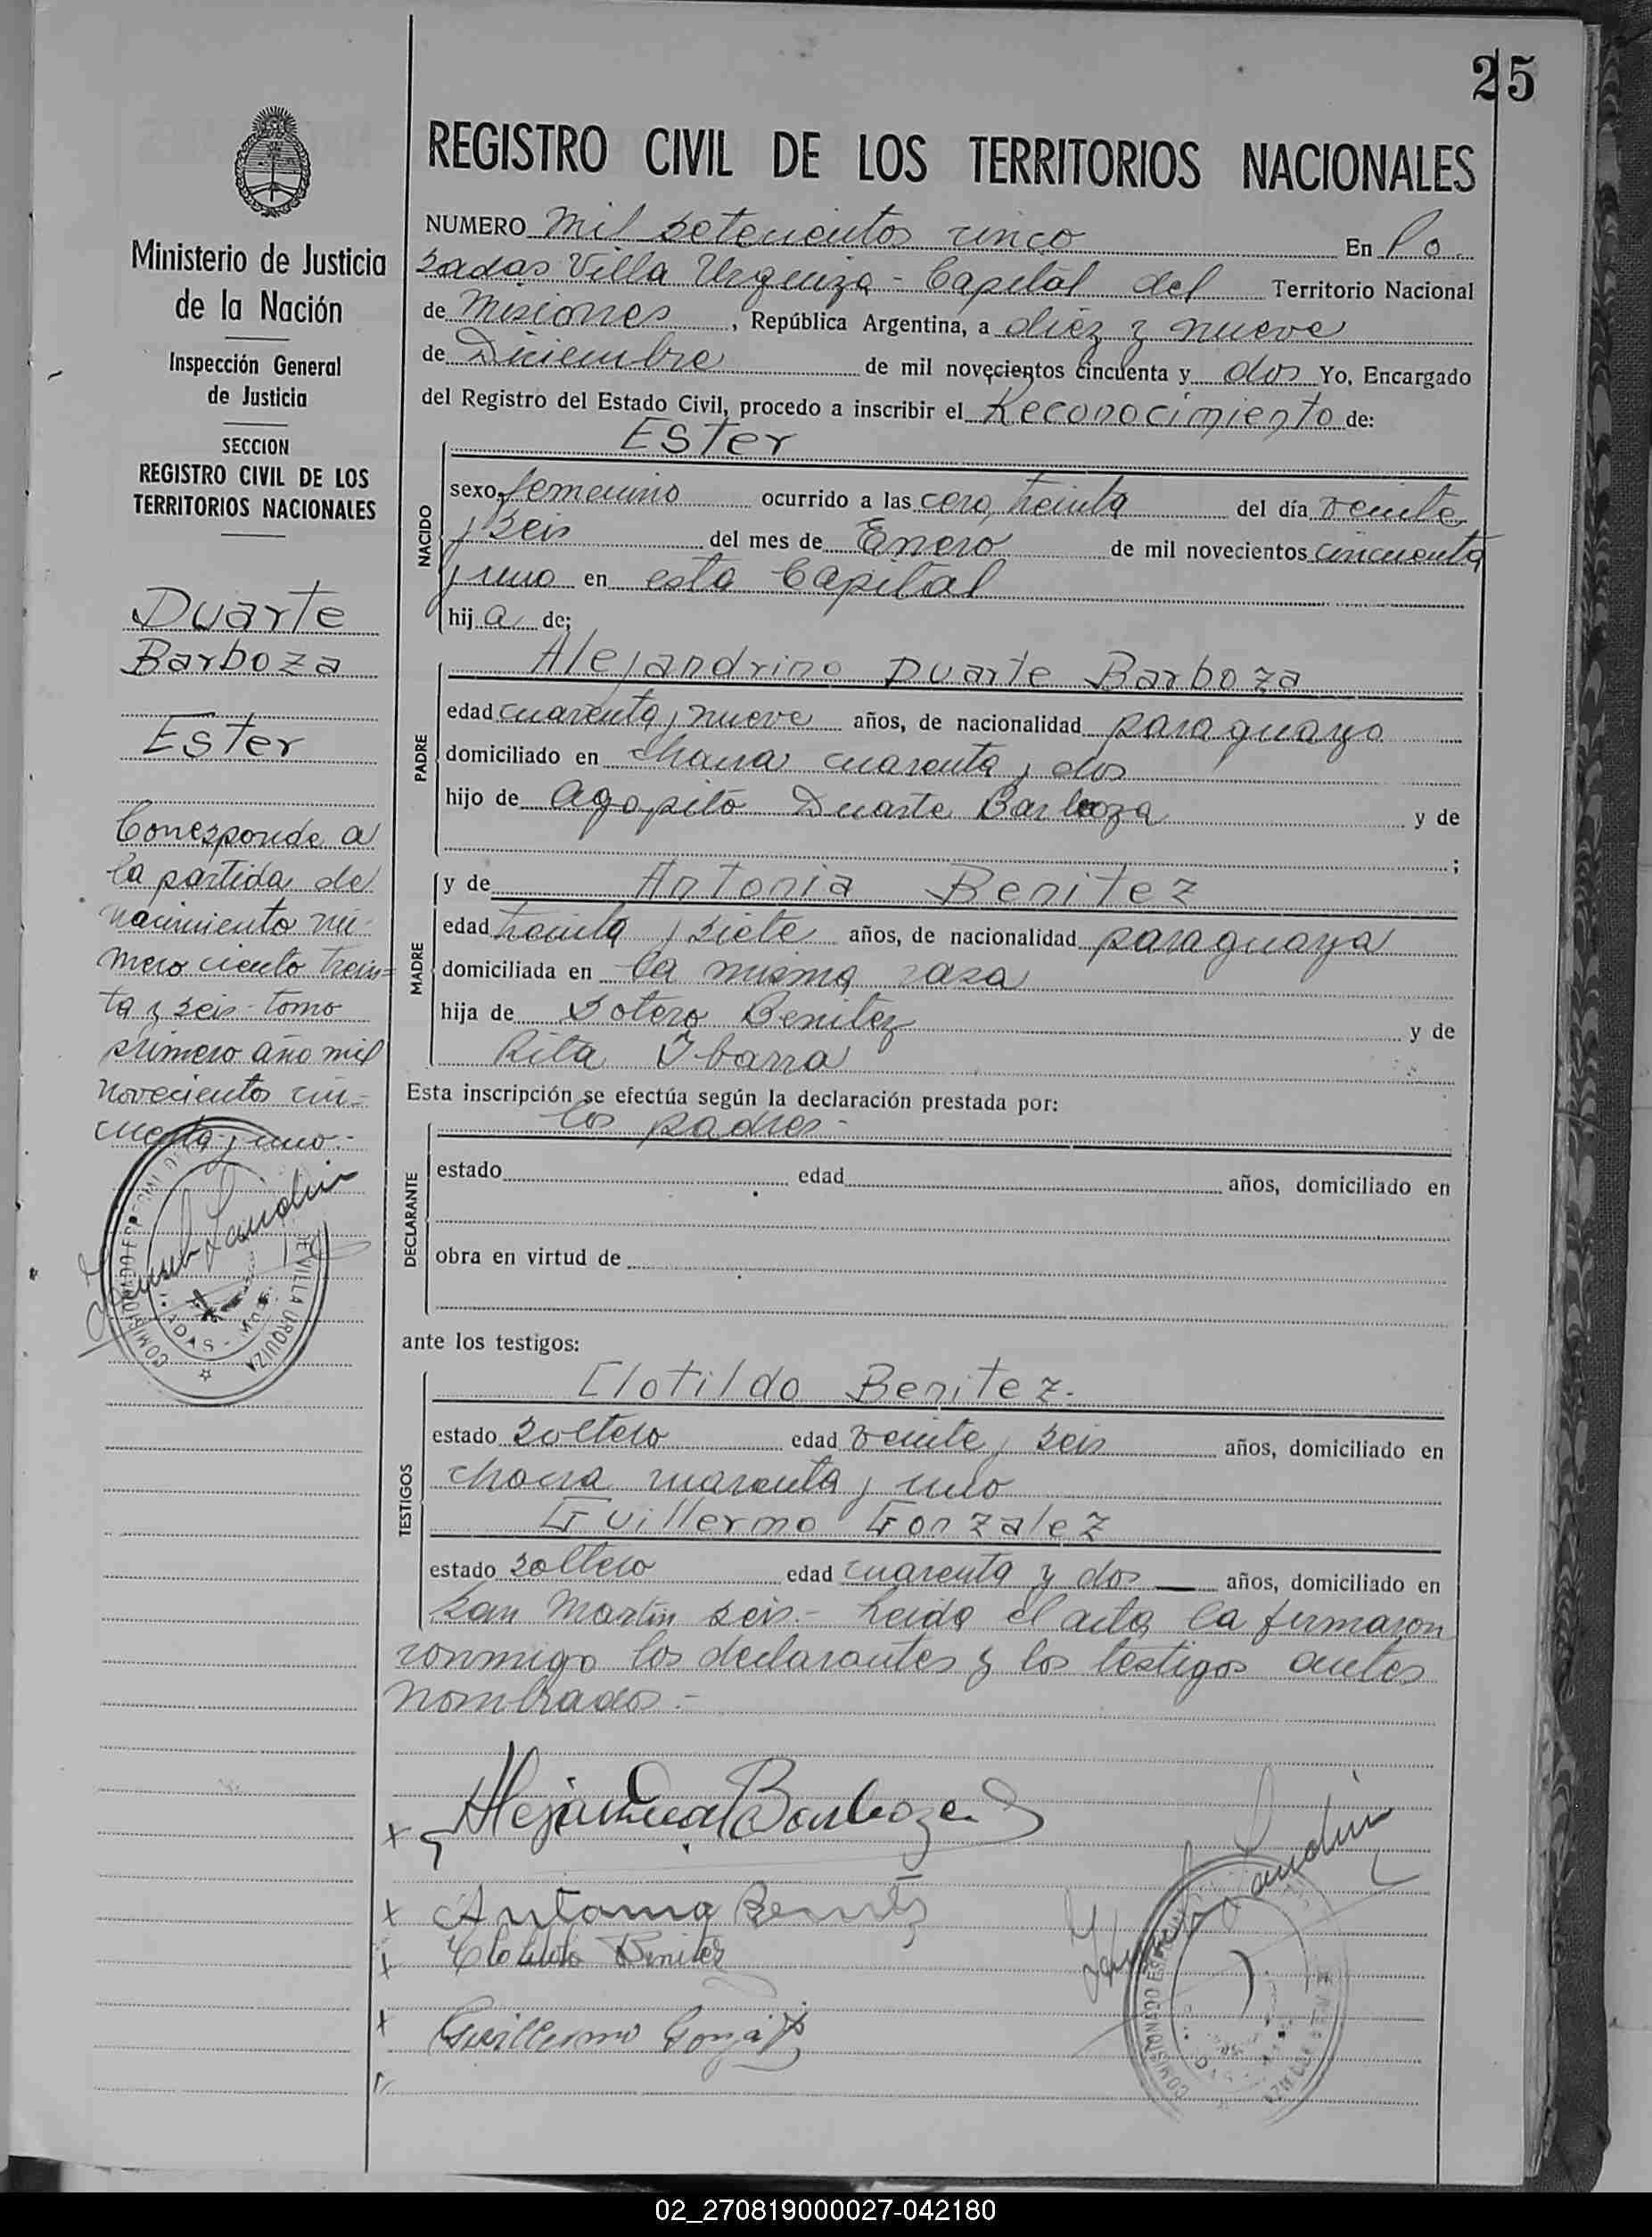 25
REGISTRO CIVIL DE LOS TERRITORIOS NACIONALES
Ministerio de Justicia
de la Nación
Inspección General
de Justicia
SECCION
REGISTRO CIVIL DE LOS
TERRITORIOS NACIONALES
Duarte
Barboza
Ester
Corresponde a
la partida de
nacimiento nú-
mero ciento trein=
ta y seis - tomo
primero año mil
novecientos cin-
cuenta y uno.-
NUMERO mil setecientos cinco En Po
sadas Villa Urquiza - Capital del Territorio Nacional
de Misiones, República Argentina, a diez y nueve
de Diciembre de mil novecientos cincuenta y dos Yo, Encargado
del Registro del Estado Civil, procedo a inscribir el Reconocimiento de:
Ester
NACIDO
sexo femenino ocurrido a las cero, treinta del día veinte
y seis del mes de Enero de mil novecientos cincuenta
y uno en esta Capital
hija de;
PADRE
Alejandrino Duarte Barboza
edad cuarenta y nueve años, de nacionalidad paraguaya
domiciliado en chacra cuarenta y dos
hijo de Agapito Duarte Barboza y de
;
MADRE
y de Antonia Benitez
edad treinta y siete años, de nacionalidad paraguaya
domiciliada en la misma casa
hija de Sotero Benitez y de
Rita Ibarra
Esta inscripción se efectúa según la declaración prestada por:
los padres-
DECLARANTE
estado edad años, domiciliado en
obra en virtud de
ante los testigos:
TESTIGOS
Clotildo Benitez.
estado soltero edad veinte y seis años, domiciliado en
chacra cuarenta y uno
Guillermo Gonzalez
estado soltero edad cuarenta y dos — años, domiciliado en
San Martín seis.- Leida el acta, la firmaron
conmigo los declarantes y los testigos antes
nombrados.-
x Alejandrino Barboza D
x Antonia Benitez
x Clotildo Benitez
x Guillermo Gonzalez
VILLA URQUIZA
02_270819000027-042180